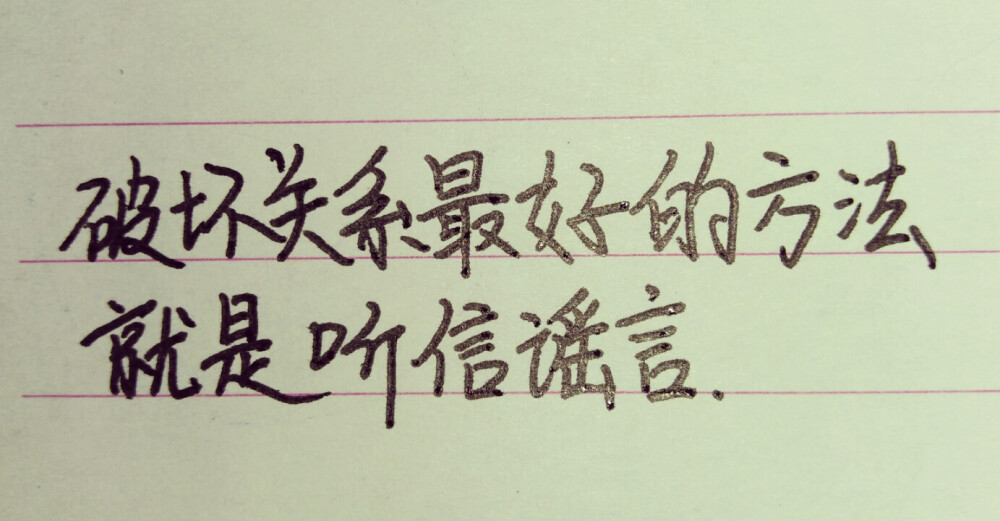 破坏关系最好的方法
就是听信谣言.